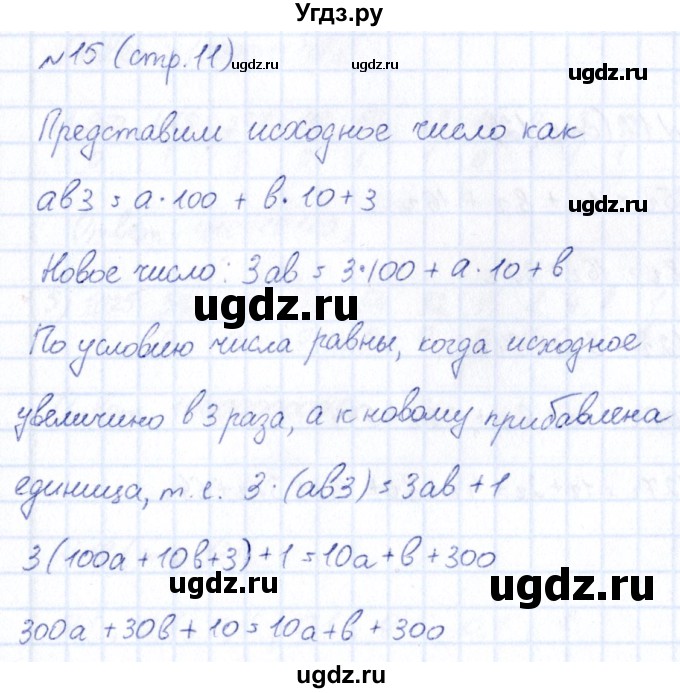 Угдз.ру
№15 (стр.11)
ugdz.ru
ugdz.ru
Представим исходное число как
ав3 = а·100 + в·10+3
ugdz.ru
Новое число: 3ав = 3·100 + а·10+в
ugdz.ru
ugdz.ru
По условию числа равны, когда исходное
увеличино в 3 раза, а к новому прибавлена
ugdz.ru
единица, т.е. 3·(ав3) = 3ав +1
3(100а +10в+3)+1=10а+в+300
ugdz.ru
ugdz.ru
300а +30в +10 = 10а+в + 300
ugdz.ru